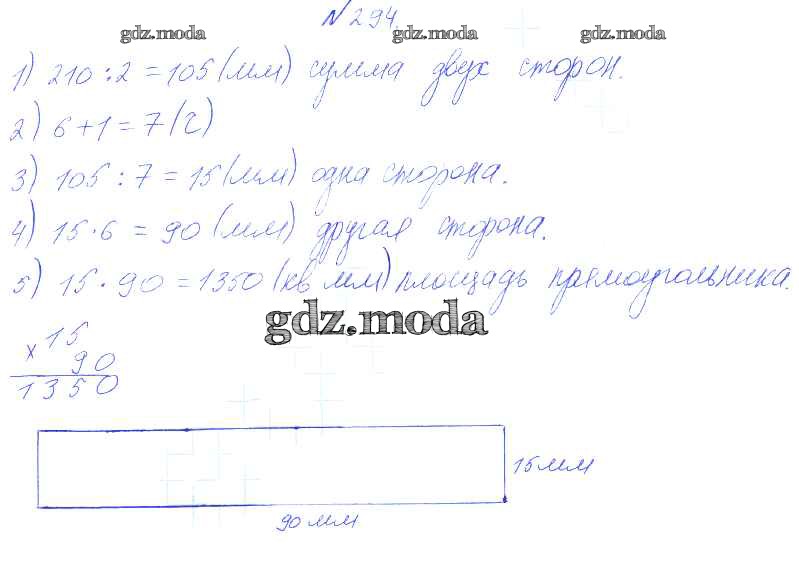 № 294.
gdz.moda gdz.moda gdz.moda
1) 210 : 2 = 105 (мм) сумма двух сторон.
2) 6 + 1 = 7 (ч)
3) 105 : 7 = 15 (мм) одна сторона.
4) 15 · 6 = 90 (мм) другая сторона.
5) 15 · 90 = 1350 (кв мм) площадь прямоугольника.
gdz.moda
15
× 90
1350
15 мм
90 мм